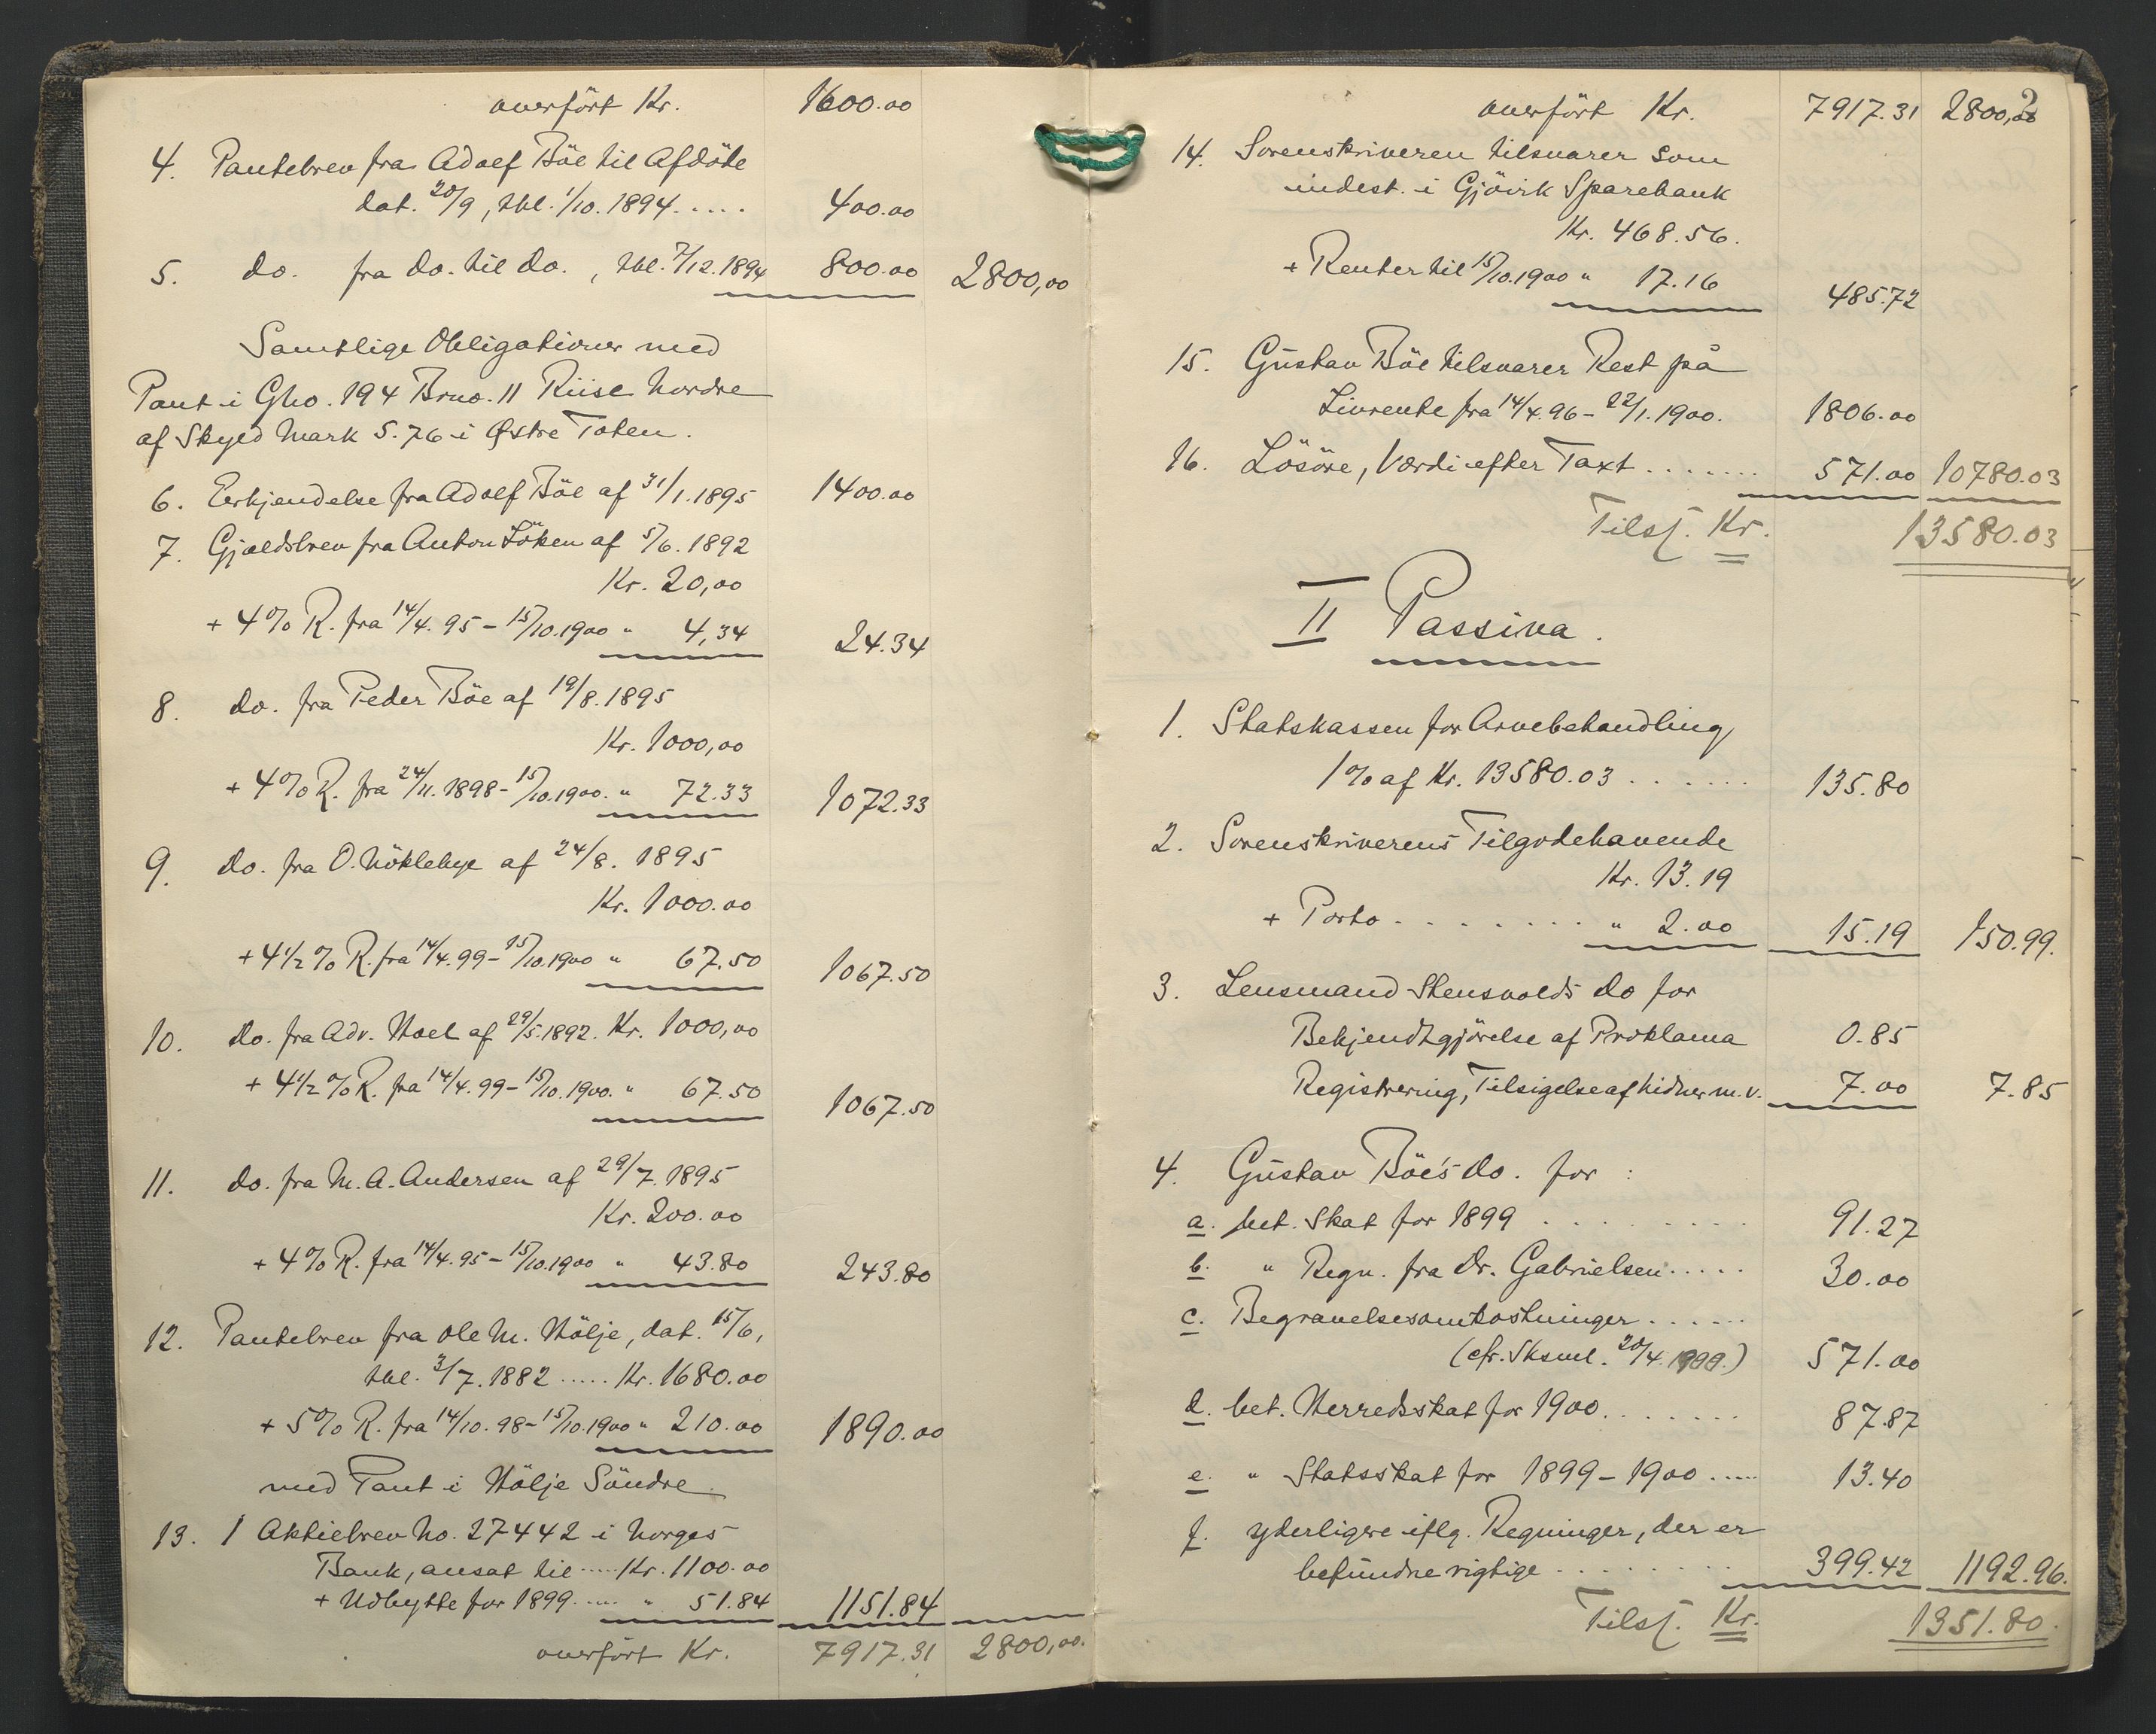 overført Kr. 1600.00
4. Pantebrev fra Adolf Böe til Afdöde
dat. 20/9, tbl. 1/10. 1894..... 400.00
5. do. fra do. til do., tbl. 7/12. 1894 800.00 2800,00
Samtlige Obligationer med
Pant i Gno. 194 Brno. 11 Riise Nordre
af Skyld Mark 5.76 i Østre Toten.
6. Erkjendelse fra Adolf Böe af 31/1. 1895 1400.00
7. Gjældsbrev fra Anton Löken af 5/6. 1892
Kr. 20,00
+ 4% R. fra 14/4. 95 – 15/10. 1900 " 4,34 24.34
8. do. fra Peder Böe af 19/8. 1895
Kr. 1000,00
+ 4% R. fra 24/11. 1898 – 15/10. 1900. " 72.33 1072.33
9. do. fra O. Nöklebye af 24/8. 1895
Kr. 1000.00
+ 4½ % R. fra 14/4. 99 – 15/10. 1900 " 67.50 1067.50
10. do. fra Adv. Hoel af 29/5. 1892. Kr. 1000,00
+ 4½ % R. fra 14/4. 99 – 15/10. 1900. " 67.50 1067.50
11. do. fra M. A. Andersen af 29/7. 1895
Kr. 200.00
+ 4% R. fra 14/4. 95 – 15/10. 1900 " 43.80 243.80
12. Pantebrev fra Ole M. Hölje, dat. 15/6,
tbl. 3/7. 1882 ..... Kr. 1680.00
+ 5% R. fra 14/10. 98 – 15/10. 1900 " 210.00 1890.00
med Pant i Hölje Söndre
13. 1 Aktiebrev No. 27442 i Norges
Bank, ansat til ..... Kr. 1100.00
+ Udbytte for 1899 ..... " 51.84 1151.84
overført Kr. 7917.31 2800,00.
2
overført Kr. 7917.31 2800,00
14. Sorenskriveren tilsvarer som
indest. i Gjövik Sparebank
Kr. 468.56.
+ Renter til 15/10. 1900 " 17.16 485.72
15. Gustav Böe tilsvarer Rest på
Livrente fra 14/4. 96 – 22/1. 1900. 1806.00
16. Lösöre, Værdi efter Taxt ....... 571.00 10780.03
Tils. Kr. 13580.03
II Passiva.
1. Statskassen for Arvebehandling
1% af Kr. 13580.03 ....... 135.80
2. Sorenskriverens Tilgodehavende
Kr. 13.19
+ Porto ........ " 2.00 15.19 150.99.
3. Lensmand Stensvolds do for
Bekjendtgjörelse af Proklama 0.85
Registrering, Tilsigelse af Vidner m. v. 7.00 7.85
4. Gustav Böe's do. for :
a. bet. Skat for 1899 ........ 91.27
b. " Regn. fra Dr. Gabrielsen ..... 30.00
c. Begravelsesomkostninger ......
(cfr. Sksml. 20/4. 1900.) 571.00
d. bet. Herredsskat for 1900 ....... 87.87
e. " Statsskat for 1899 – 1900 ..... 13.40
f. yderligere iflg. Regninger, der er
befundne rigtige ........ 399.42 1192.96.
Tils. Kr. 1351.80.